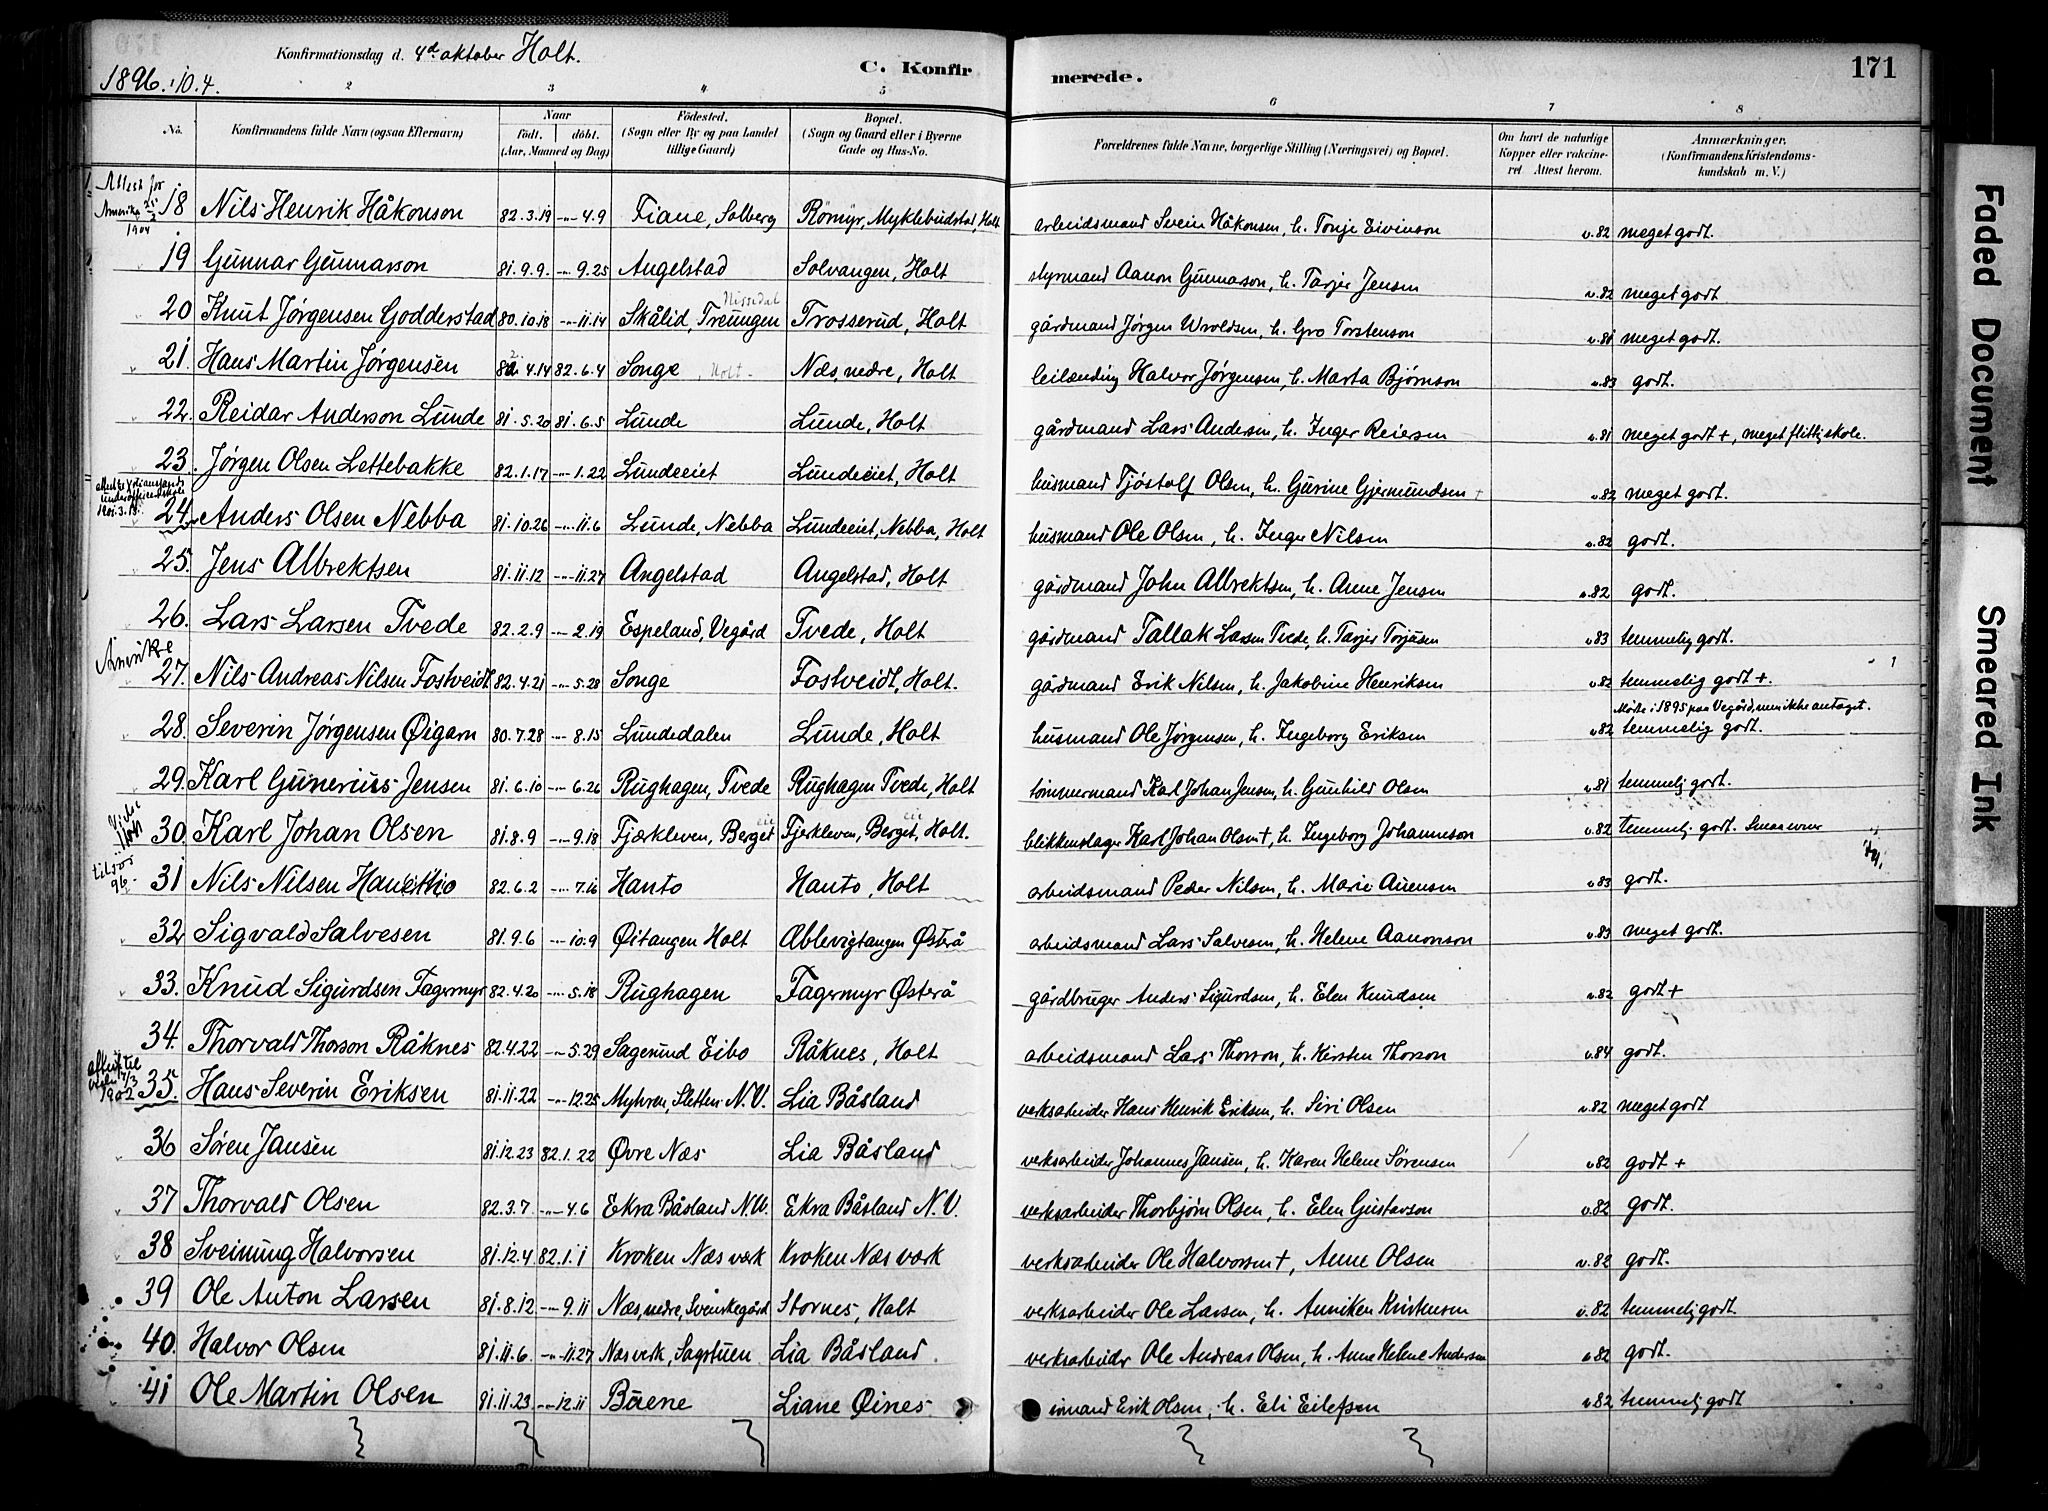 Konfirmationsdag d. 4d oktober Holt.
1896.10.4.
C. Konfirmerede.
171
2 3 4 5 6 7 8
No. Konfirmandens fulde Navn (ogsaa Efternavn) Naar födt. döbt. (Aar, Maaned og Dag) Födested. (Sogn eller By og paa Landet tillige Gaard) Bopæl. (Sogn og Gaard eller i Byerne Gade og Hus-No. Forældrenes fulde Navne, borgerlige Stilling (Næringsvei) og Bopæl. Om havt de naturlige Kopper eller vaccineret. Attest herom. Anmærkninger. (Konfirmandens Kristendomskundskab m. V.)
Attest for Amerika 1904
18 Nils Henrik Håkonson 82.3.19 -"- 4.9 Fiane, Solberg Römyr, Myklebudstad, Holt arbeidsmand Svein Håkonsen, h. Tonje Eivinson v.82 meget godt.
19 Gunnar Gunnarson 81.9.9. -"- 9.25 Angelstad Solvangen, Holt styrmand Aanon Gunnarson, h. Tarjer Jensen v.82 meget godt
20 Knut Jørgensen Godderstad 80.10.18 -"- 11.14 Skålid, Treungen Nissedal Trosserud, Holt gårdmand Jørgen Wroldsen, h. Gro Torstenson v.81 meget godt.
21. Hans Martin Jørgensen 82.4.14 82.6.4 Songe, Holt Næs, nedre, Holt leilænding Halvor Jørgensen, h. Marta Bjørnson v.83 godt.
22. Reidar Anderson Lunde 81.5.20 81.6.5 Lunde Lunde, Holt gårdmand Lars Andersen, h. Inger Reiersen v.81 meget godt +, meget flittj skole.
23. Jørgen Olsen Lettebakke 82.1.17 -"- 1.22 Lundeeiet Lundeeiet, Holt husmand Tjöstolf Olsen, h. Gurine Gjermundsen + v.82 meget godt.
24. Anders Olsen Nebba 81.10.26 -"- 11.6 Lunde, Nebba Lundeeiet, Nebba, Holt husmand Ole Olsen, h. Inger Nilsen v.82 godt.
25. Jens Albrektsen 81.11.12 -"- 11.27 Angelstad Angelstad, Holt gårdmand John Albrektsen, h. Anne Jensen v.82 godt.
26. Lars Larsen Tvede 82.2.9 -"- 2.19 Espeland, Vegård Tvede, Holt gårdmand Tallak Larsen Tvede, h. Tarjer Torjusen v.83 temmelig godt.
Amerika
27. Nils Andreas Nilsen Fostveidt 82.4.21 -"- 5.28 Songe Fostveidt, Holt. gårdmand Erik Nilsen, h. Jakobine Henriksen v.82 temmelig godt +.
Mødte i 1895 paa Vegård, men ikke antaget.
28. Severin Jørgensen Øigarn 80.7.28 -"- 8.15 Lundedalen Lunde, Holt husmand Ole Jørgensen, h. Ingeborg Eriksen v.82 temmelig godt.
29. Karl Gunerius Jensen 81.6.10 -"- 6.26 Rughagen, Tvede Rughagen Tvede, Holt tömmermand Karl Johan Jensen, h. Gunhild Olsen v.81 temmelj godt.
30. Karl Johan Olsen 81.8.9 -"- 9.18 Fjærkleven, Berget eie Fjerkleven, Berget, eie Holt. blikkenslager Karl Johan Olsen +, h. Ingeborg Johanneson v.82 temmelj. godt.
31 Nils Nilsen Hanto 82.6.2 -"- 7.16 Hanto Hanto, Holt arbeidsmand Peder Nilsen, h. Marie Auensen v.83 godt.
32 Sigvald Salvesen 81.9.6 -"- 10.9 Øitangen Holt Ablevigtangen Østerå arbeidsmand Lars Salvesen, h. Helene Aanonson v.83 meget godt.
33. Knud Sigurdsen Fagermyr 82.4.20 -"- 5.18 Rughagen Fagermyr Østerå gårdbruger Anders Sigurdsen, h. Elen Knudsen v.82 godt +
34. Thorvald Thorson Råknes 82.4.22 -"- 5.29 Sagesund Eibo Råknes, Holt arbeidsmand Lars Thorson, h. Kirsten Thorson v.84 godt.
35. Hans Severin Eriksen 81.11.22 -"- 12.25 Myhren, Sletten N.V. Lia Båsland verksarbeider Hans Henrik Eriksen, h. Siri Olsen v.82 meget godt
36 Søren Jansen 81.12.23 82.1.22 Øvre Næs Lia Båsland verksarbeider Johannes Jansen, h. Karen Helene Sørensen v.82 godt +
37 Thorvald Olsen 82.3.7. -"- 4.6 Ekra Båsland N.V. Ekra Båsland N.V. verksarbeider Thorbjørn Olsen, h. Elen Gustavson v.82 godt.
38 Sveinung Halvorsen 81.12.4 82.1.1 Kroken Næs værk Kroken Næs værk verksarbeider Ole Halvorsen +, Anne Olsen v.82 godt.
39 Ole Anton Larsen 81.8.12 -"- 9.11 Næs, nedre, Svenskegård Stornes, Holt verksarbeider Ole Larsen, h. Anniken Kristensen v.82 temmelj godt.
40. Halvor Olsen 81.11.6. -"- 11.27 Næs verk, Sagstuen Lia Båsland. verksarbeider Ole Andreas Olsen, h. Anne Helene Andersen v.82 godt.
41 Ole Martin Olsen 81.11.23. -"- 12.11 Buene Liane Øines inmand Erik Olsen, h. Eli Eilefsen v.82 temmelj godt
Faded Document
Smeared Ink